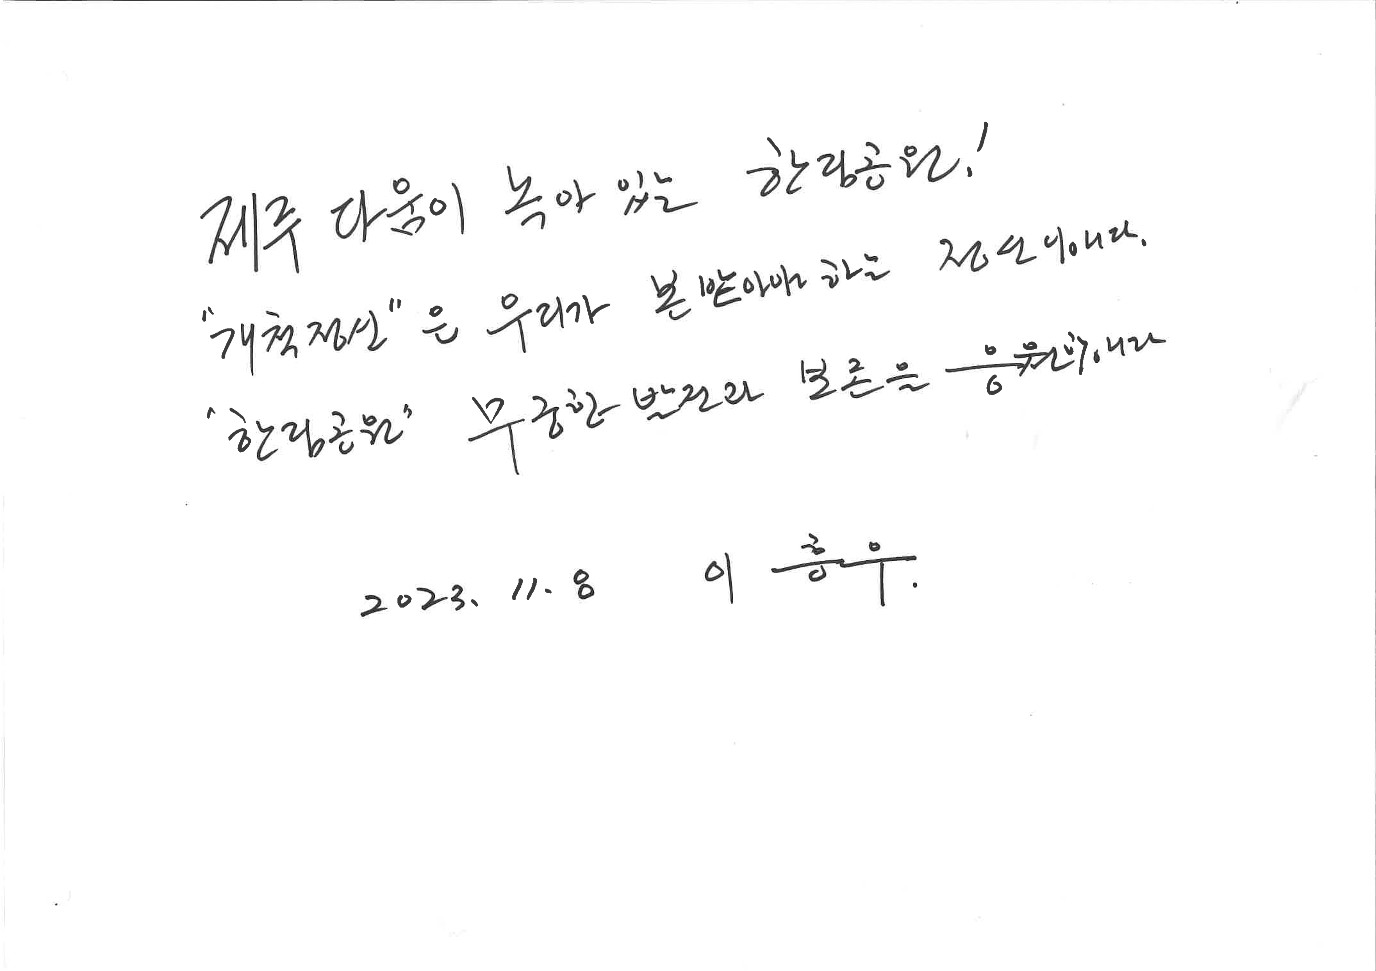 제주 다움이 녹아 있는 한림공원!
"개척정신"은 우리가 본 받아야 하는 정신입니다.
'한림공원' 무궁한 발전과 보존을 응원합니다
2023. 11. 8 이 흥우.